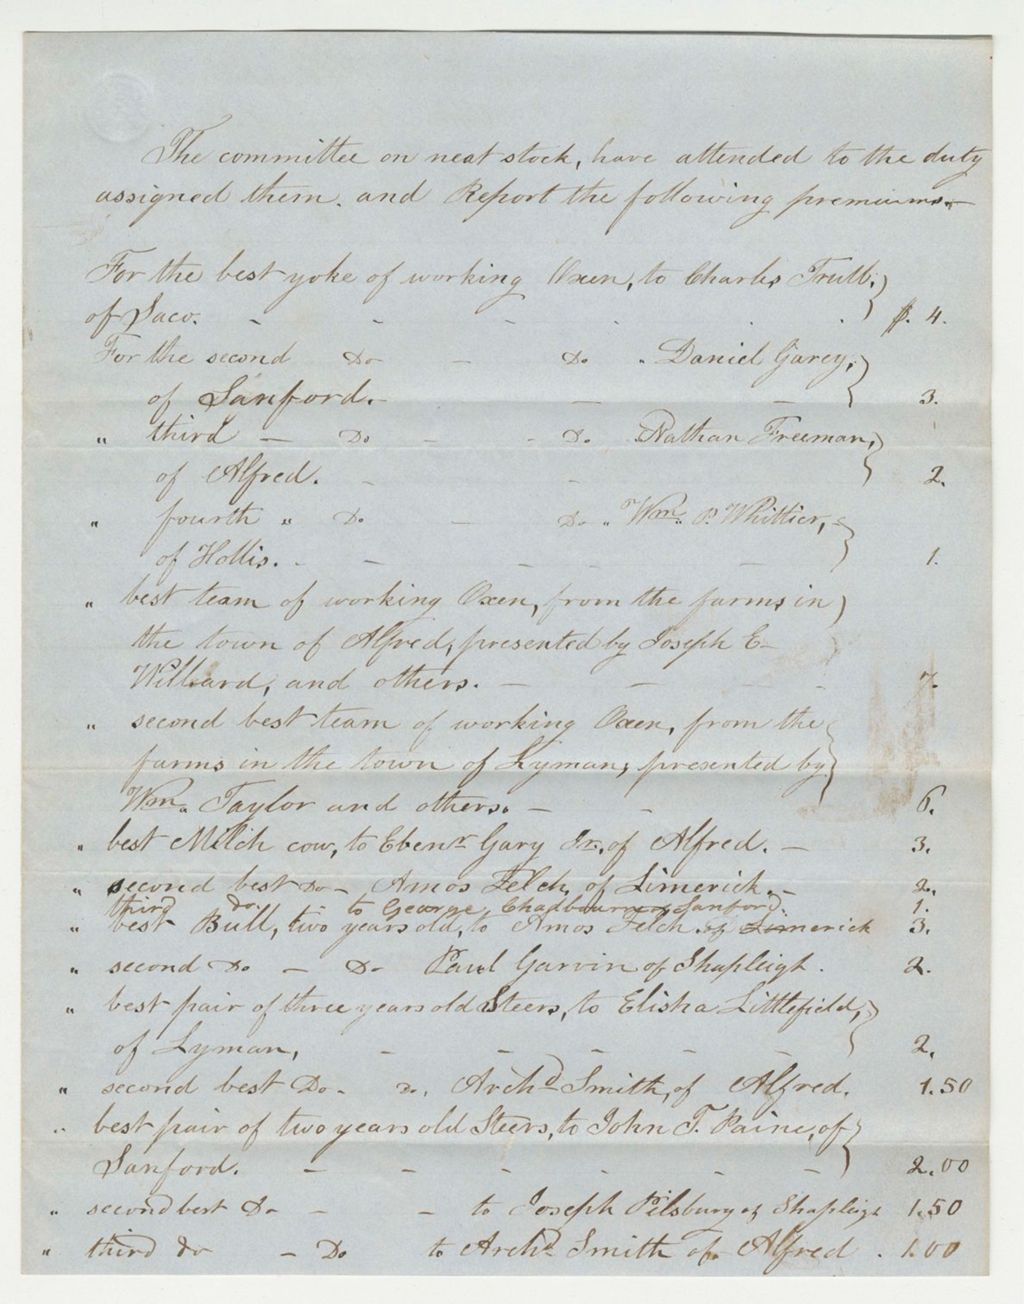 The committee on neat stock, have attended to the duty
assigned them. and Report the following premiums.
For the best yoke of working Oxen, to Charles Trull,
of Saco. - - - - - - $. 4.
For the second Do - Do " Daniel Garey,
of Sanford. - - - 3.
" third - Do - - Do. Nathan Freeman,
of Alfred. - - 2.
" fourth " Do - Do " Wm. P. Whittier,
of Hollis. - - - - - 1.
" best team of working Oxen, from the farms in
the town of Alfred, presented by Joseph E-
Willard, and others. - - - - 7.
" second best team of working Oxen, from the
farms in the town of Lyman, presented by
Wm. Taylor and others. - - 6.
" best Milch cow, to Ebenr Gary Jr. of Alfred. - 3.
" second best Do - Amos Felch, of Limerick. - 2.
third do. - to George Chadbourne of Sanford. 1.
" best Bull, two years old, to Amos Felch of Limerick 3.
" second Do - Do Paul Garvin of Shapleigh. 2.
" best pair of three years old Steers, to Elisha Littlefield,
of Lyman, - - - - - 2.
" second best Do - Do, Archd Smith, of Alfred. 1.50
" best pair of two years old Steers, to John T. Paine, of
Sanford. - - - - - - 2.00
" second best Do - - to Joseph Pilsbury of Shapleigh 1.50
" third do - Do to Archd Smith of Alfred. 1.00